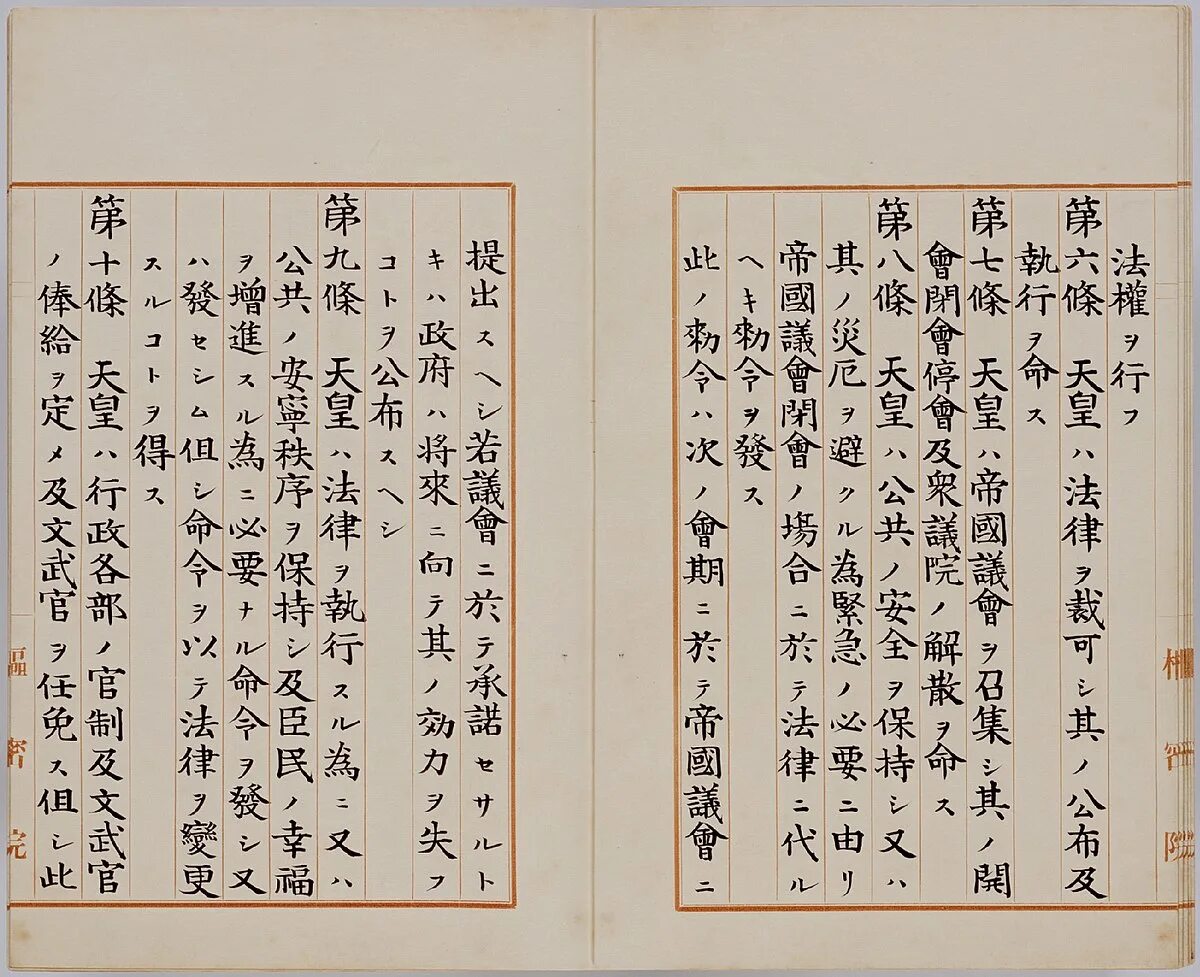 法權ヲ行フ
第六條　天皇ハ法律ヲ裁可シ其ノ公布及
執行ヲ命ス
第七條　天皇ハ帝國議會ヲ召集シ其ノ開
會閉會停會及衆議院ノ解散ヲ命ス
第八條　天皇ハ公共ノ安全ヲ保持シ又ハ
其ノ災厄ヲ避クル為緊急ノ必要ニ由リ
帝國議會閉會ノ場合ニ於テ法律ニ代ル
ヘキ勅令ヲ發ス
此ノ勅令ハ次ノ會期ニ於テ帝國議會ニ
提出スヘシ若議會ニ於テ承諾セサルト
キハ政府ハ将來ニ向テ其ノ効力ヲ失フ
コトヲ公布スヘシ
第九條　天皇ハ法律ヲ執行スル為ニ又ハ
公共ノ安寧秩序ヲ保持シ及臣民ノ幸福
ヲ增進スル為ニ必要ナル命令ヲ發シ又
ハ發セシム但シ命令ヲ以テ法律ヲ變更
スルコトヲ得ス
第十條　天皇ハ行政各部ノ官制及文武官
ノ俸給ヲ定メ及文武官ヲ任免ス但シ此
樞密院